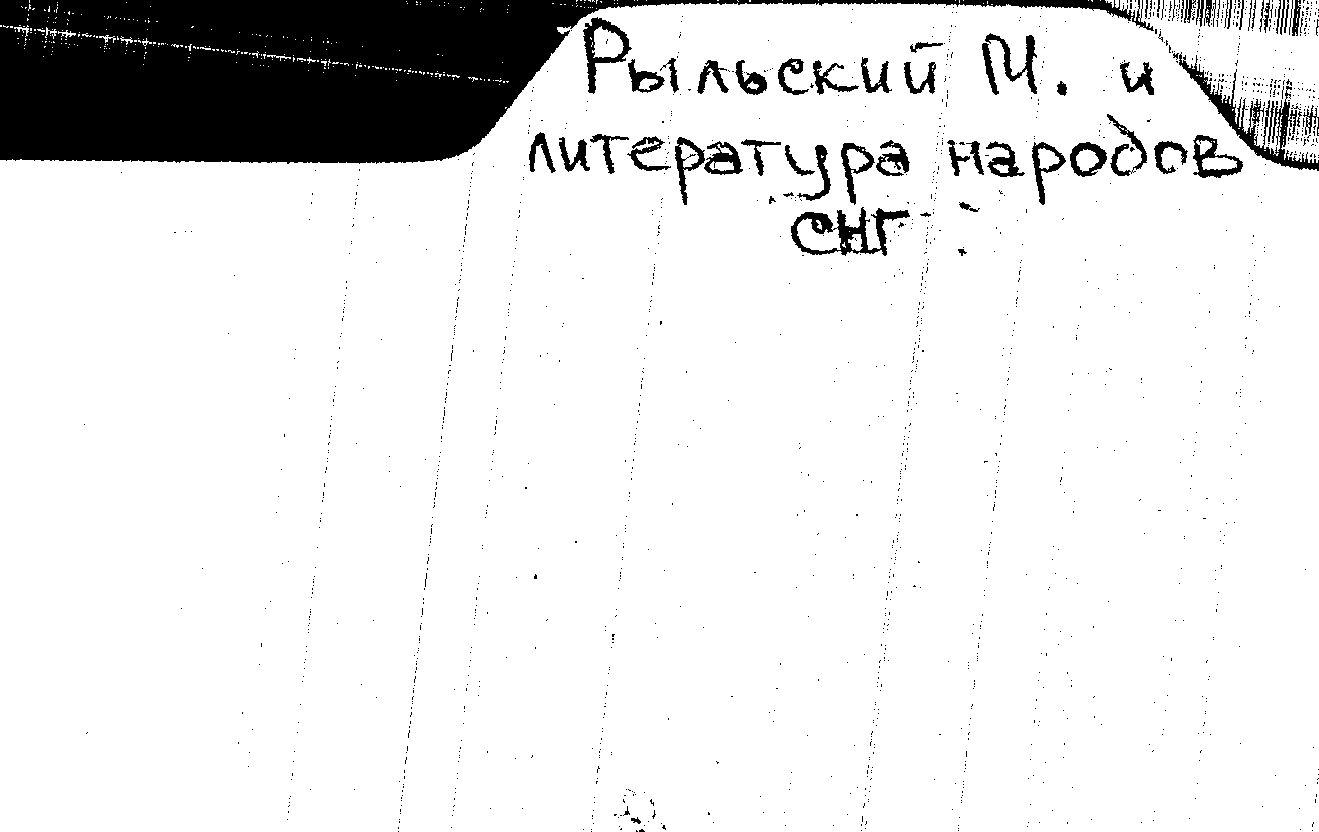 Рыльский М. и
литература народов
СНГ